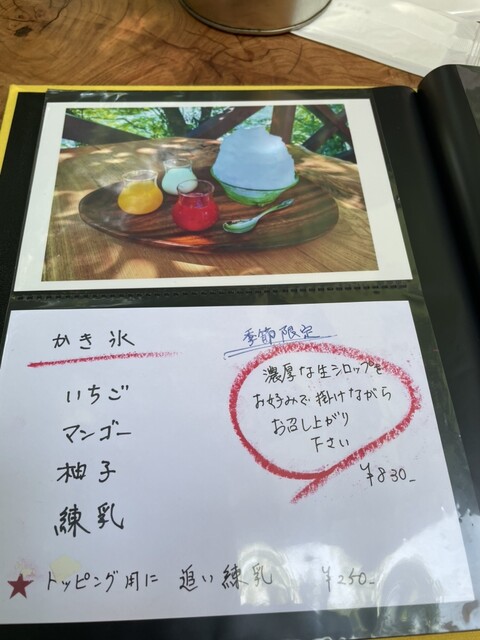 かき氷
季節限定
いちご
マンゴー
柚子
練乳
濃厚な生シロップを
お好みで掛けながら
お召し上がり
下さい
¥830-
★トッピング用に 追い練乳 ¥250-